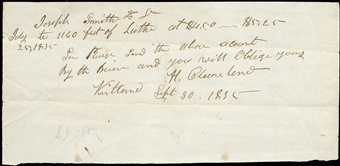 Joseph Smith To Dr
July to 1140 feet of Lathe at $4.50 — $85.25
25, 1835
Sir Please Send the above acount
by the Barer and you will Oblige yours
H. Cleaveland
Kirtland Sept 30. 1835